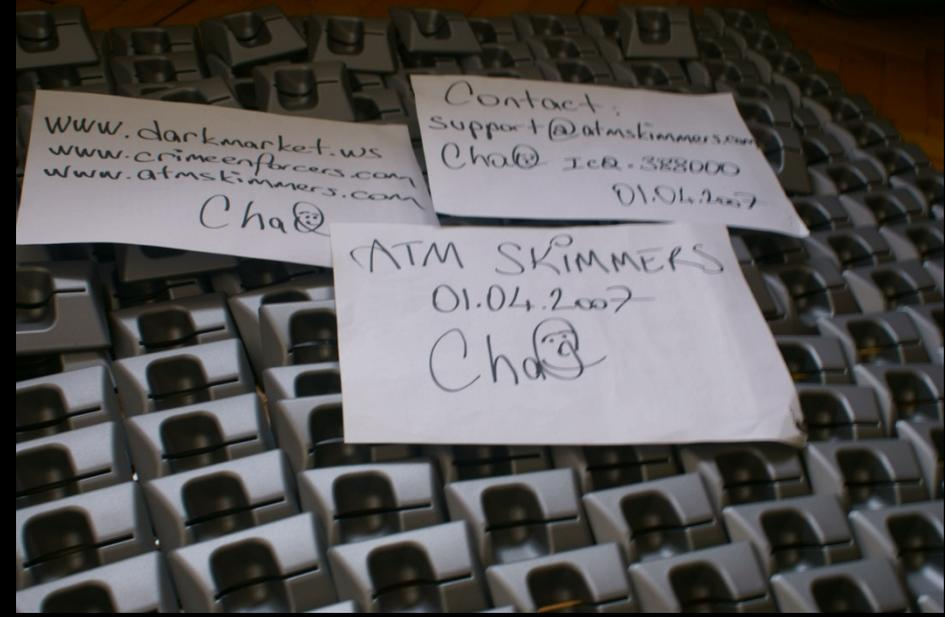 www.darkmarket.ws
www.crimeenforcers.com
www.atmskimmers.com
Cha@
Contact:
support@atmskimmers.com
Cha@ ICQ.388000
01.04.2007
ATM SKIMMERS
01.04.2007
Cha@